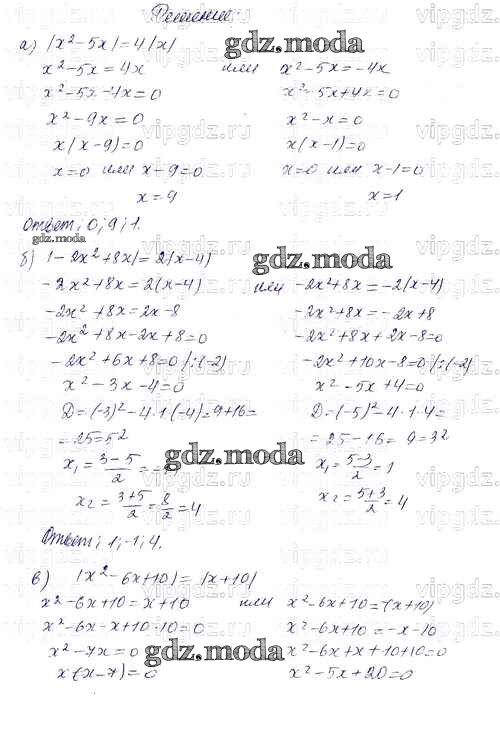 Решение:
а) |x²-5x|=4|x|
x²-5x=4x или x²-5x=-4x
x²-5x-4x=0 x²-5x+4x=0
x²-9x=0 x²-x=0
x(x-9)=0 x(x-1)=0
x=0 или x-9=0 x=0 или x-1=0
x=9 x=1
Ответ: 0; 9; 1.
б) |-2x²+8x|=2|x-4|
-2x²+8x=2(x-4) или -2x²+8x=-2(x-4)
-2x²+8x=2x-8 -2x²+8x=-2x+8
-2x²+8x-2x+8=0 -2x²+8x+2x-8=0
-2x²+6x+8=0 |:(-2) -2x²+10x-8=0 |:(-2)
x²-3x-4=0 x²-5x+4=0
D=(-3)²-4·1(-4)=9+16= D=(-5)²-4·1·4=
=25=5² =25-16=9=3²
x₁=(3-5)/2=-1 x₁=(5-3)/2=1
x₂=(3+5)/2=8/2=4 x₂=(5+3)/2=4
Ответ: 1; -1; 4.
в) |x²-6x+10|=|x+10|
x²-6x+10=x+10 или x²-6x+10=-(x+10)
x²-6x-x+10-10=0 x²-6x+10=-x-10
x²-7x=0 x²-6x+x+10+10=0
x(x-7)=0 x²-5x+20=0
gdz.moda
gdz.moda
gdz.moda
gdz.moda
gdz.moda
vipgdz.ru